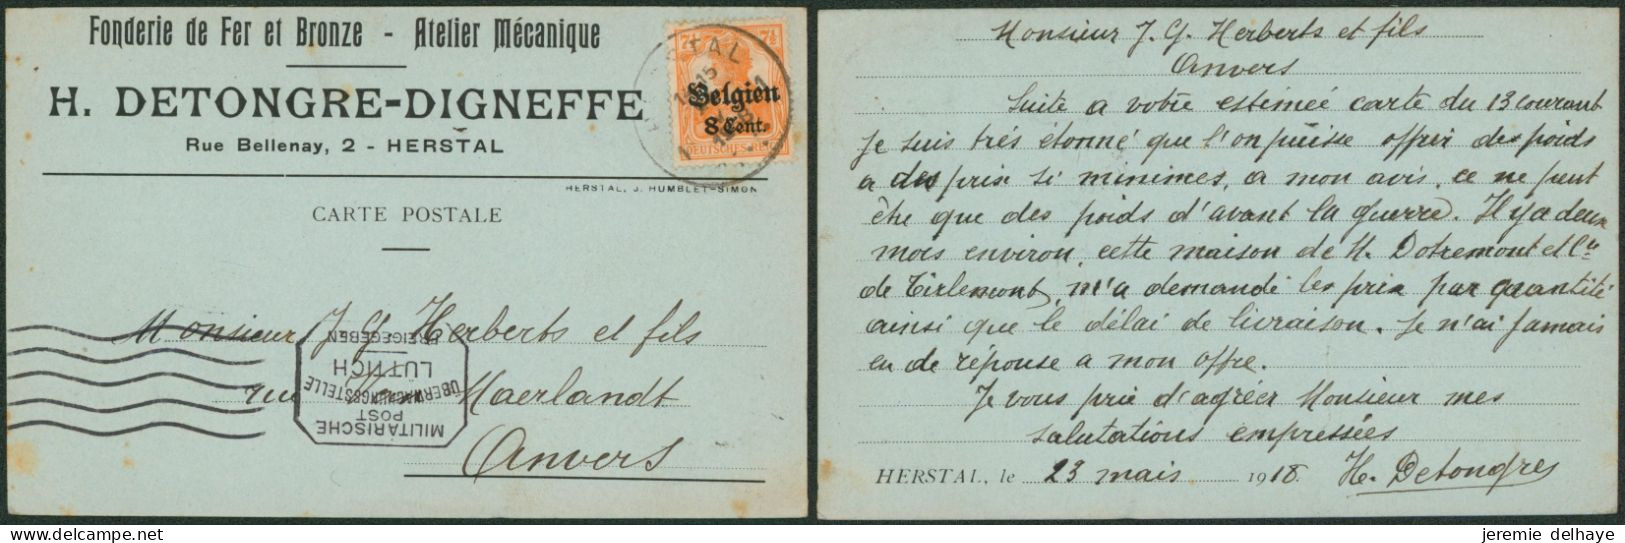 Fonderie de Fer et Bronze - Atelier Mécanique
H. DETONGRE-DIGNEFFE
Rue Bellenay, 2 - HERSTAL
7½ 7½
Belgien
8 Cent.
DEUTSCHES REICH
HERSTAL, J. HUMBLET-SIMON
CARTE POSTALE
Monsieur J. G. Herberts et fils
rue Van Maerlandt
Anvers
MILITÄRISCHE
POST
ÜBERWACHUNGSSTELLE
LÜTTICH
FREIGEGEBEN
Monsieur J. G. Herberts et fils
Anvers
Suite a votre estimeé carte du 13 courant
Je suis trés étonné que l'on puisse offrir des poids
a des prix si minimes, a mon avis, ce ne peut
être que des poids d'avant la guerre. Il y a deux
mois environ, cette maison de H. Dotremont et Cie
de Tirlemont, m'a demandé les prix par quantité
ainsi que le délai de livraison. Je n'ai jamais
eu de réponse a mon offre.
Je vous prie d'agréer Monsieur mes
salutations empressées
HERSTAL, le 23 mais 1918. H. Detongres
jeremie delhaye